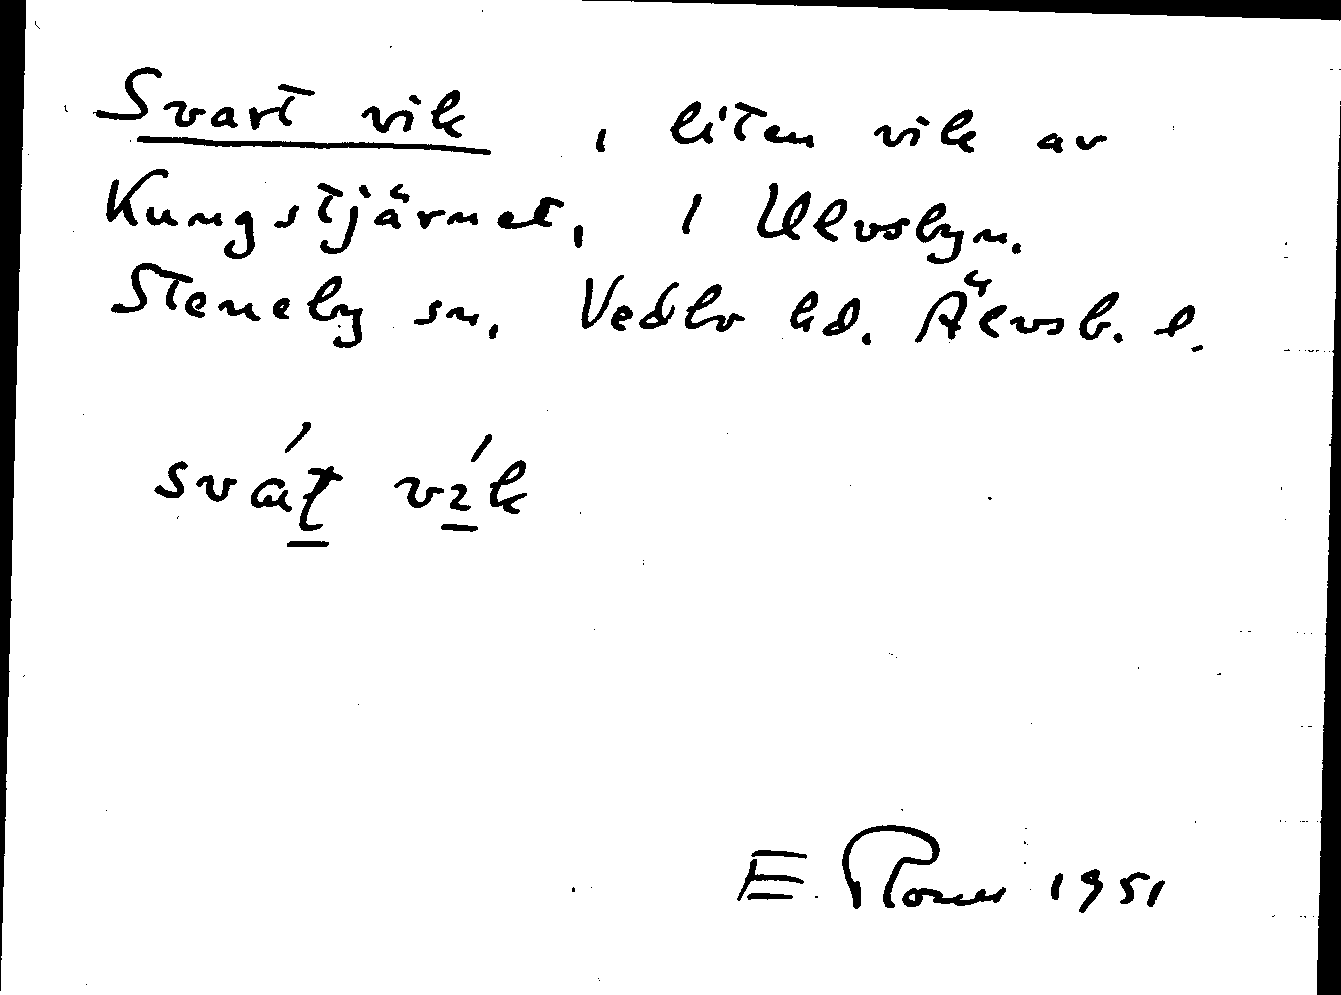 Svart vik , liten vik av
Kungstjärnet, i Ulvsbyn.
Steneby sn, Vedbo hd. Älvsb. l.
svát vík
E. 1951